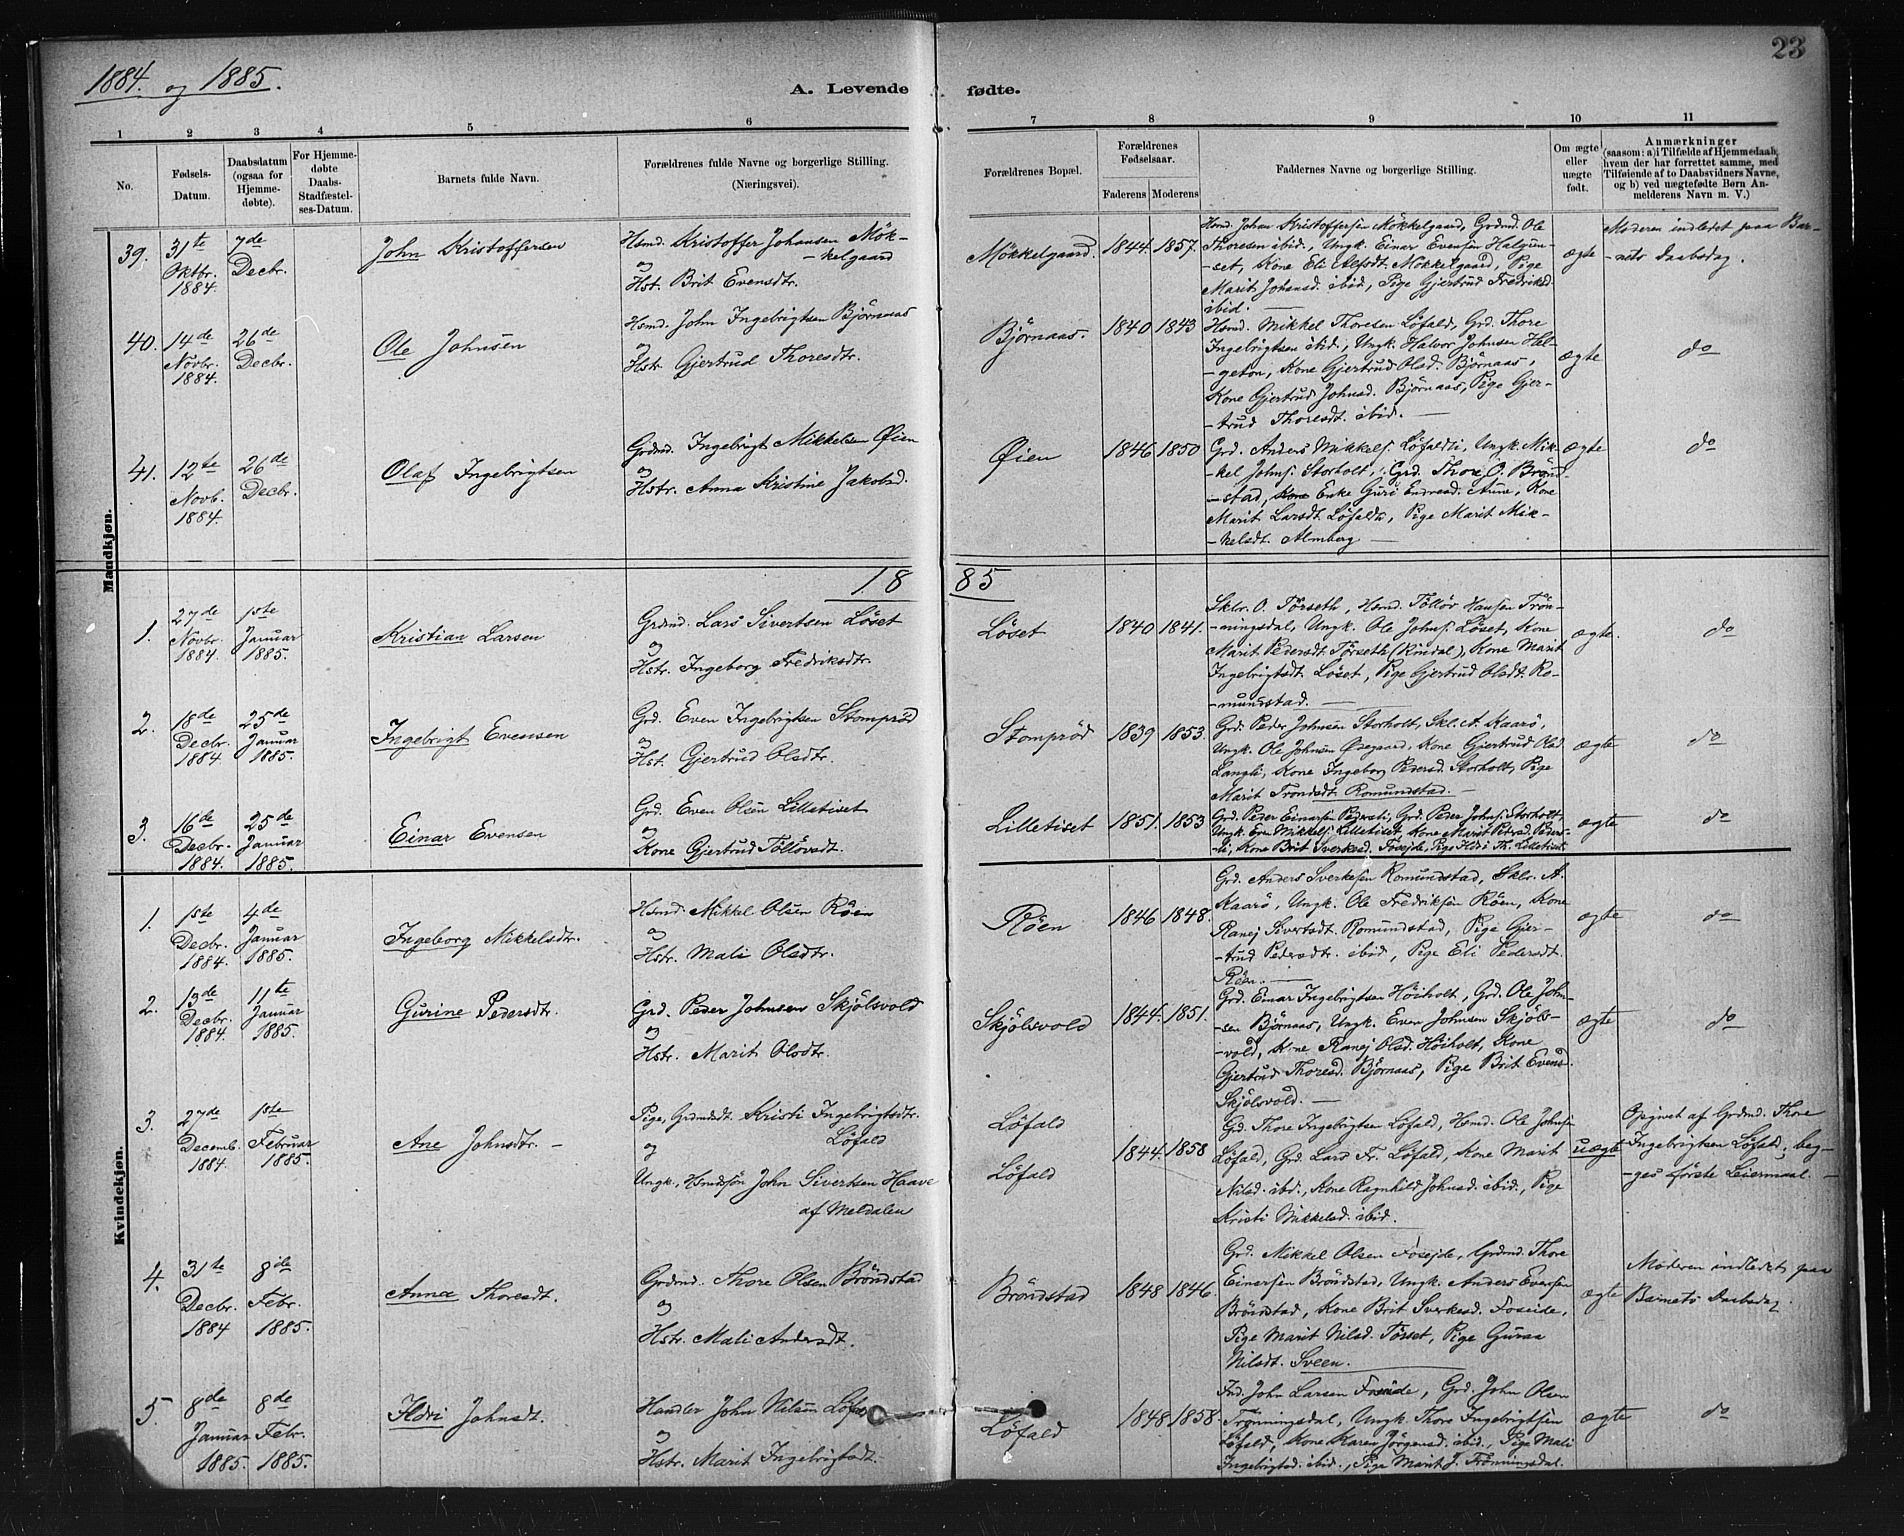 23
1884. og 1885.
A. Levende fødte.
1 2 3 4 5 6 7 8 9 10 11
No.
Fødsels-
Datum.
Daabsdatum
(ogsaa for
Hjemme-
døbte).
For Hjemme-
døbte
Daabs-
Stadfæstel-
ses-Datum.
Barnets fulde Navn.
Forældrenes fulde Navne og borgerlige Stilling.
(Næringsvei).
Forældrenes Bopæl.
Forældrenes
Fødselsaar.
Faderens Moderens
Faddernes Navne og borgerlige Stilling.
Om ægte
eller
uægte
født.
Anmærkninger
(saasom: a) i Tilfælde af Hjemmedaab,
hvem der har forrettet samme, med
Tilføiende af to Daabsvidners Navne,
og b) ved uægtefødte Børn An-
melderens Navn m. V.)
Mandkjøn.
39.
31te
Oktbr.
1884.
7de
Decbr.
John Kristoffersen
Hsmd. Kristoffer Johansen Møk-
-kelgaard
og
Hst. Brit Evensdtr.
Mökkelgaard.
1844. 1857.
Hsmd. Johan Kristoffersen Mökkelgaard, Grdmd. Ole
Thoresen ibid., Ungk. Einar Evensen Halgun-
-set, Kone Eli Olsdt. Mökkelgaard, Pige
Marit Johansd. ibid., Pige Gjertrud Fredriksd.
ibid.
ægte
Moderen indledet paa Bar-
-nets Daabsdag.
40.
14de
Novbr.
1884.
26de
Decbr.
Ole Johnsen
Hsmd. John Ingebrigtsen Bjørnaas
og
Hstr. Gjertrud Thoresdtr.
Bjørnaas.
1840 1843
Hsmd. Mikkel Thoresen Løfald, Grd. Thore
Ingebrigtsen ibid., Ungk. Halvor Johnsen Hal-
-geton, Kone Gjertrud Olsd. Bjørnaas,
Kone Gjertrud Johnsd. Bjørnaas, Pige Gjer-
-trud Thoresdt. ibid.
ægte
do
41.
12te
Novb.
1884.
26de
Decbr.
Olaf Ingebrigtsen
Grdmd. Ingebrigt Mikkelsen Øien
og
Hstr. Anna Kristine Jakobsd.
Øien
1846 1850
Grd. Anders Mikkels. Løfaldli, Ungk. Mik-
-kel Johns. Storholt, Grd. Thore O. Brönd-
-stad, Enke Guri Endresd. Aune, Kone
Marit Larsdt. Løfald, Pige Marit Mik-
-kelsdt. Almberg
ægte
do
1885
1.
27de
Novbr.
1884.
1ste
Januar
1885.
Kristian Larsen
Grdmd. Lars Sivertsen Löset
og
Hstr. Ingeborg Fredriksdtr.
Löset
1840 1841.
Sklr. O. Törseth, Hsmd. Tölløv Hansen Trön-
-ningsdal, Ungk. Ole Johns. Löset, Kone
Marit Pedersdt. Törseth (Rindal), Kone Marit
Ingebrigtsdt. Löset, Pige Gjertrud Olsdt. Ro-
-mundstad.
ægte.
do
2.
18de
Decbr.
1884
25de
Januar
1885.
Ingebrigt Evensen
Grd. Even Ingebrigtsen Stomprød
og
Hst. Gjertrud Olsdtr.
Stomprød
1839 1853.
Grd. Peder Johnsen Storholt, Skl. A. Kaarö,
Ungk. Ole Johnsen Øsegaard, Kone Gjertrud Olsd.
Langli, Kone Ingeborg Pedersd. Storholt, Pige
Marit Trondsdt. Romundstad.
ægte
do
3.
16de
Decbr.
1884.
25de
Januar
1885.
Einar Evensen
Grd. Even Olsen Lilletiset
og
Kone Gjertrud Tölløvsdt.
Lilletiset
1851. 1853
Grd. Peder Einarsen Pedersli, Grd. Peder Johns. Storholt,
Ungk. Even Mikkels. Lilletiset, Kone Marit Pedersd. Peders-
-li, Kone Brit Sverkesd. Foseide, Pige Ildri Th. Lilletiset
ægte
do
Kvindekjøn.
1.
1ste
Decbr.
1884.
4de
Januar
1885.
Ingeborg Mikkelsdtr.
Hsmd. Mikkel Olsen Röen
og
Hstr. Mali Olsdtr.
Röen
1846 1848.
Grd. Anders Sverkesen Romundstad, Sklr. A.
Kaarö, Ungk. Ole Fredriksen Röen, Kone
Ranej Sivertsdt. Romundstad, Pige Gjer-
-trud Pedersdtr. ibid, Pige Eli Pedersdt.
Röen.
ægte
do
2.
13de
Decbr.
1884.
11te
Januar
1885.
Gurine Pedersdt.
Grd. Peder Johnsen Skjölsvold
og
Hstr. Marit Olsdtr.
Skjölsvold
1844. 1851.
Grd. Einar Ingebrigtsen Höiholt, Grd. Ole John-
-sen Bjørnaas, Ungk. Even Johnsen Skjöls-
-vold, Kone Ranej Olsd. Höiholt, Kone
Gjertrud Thoresd. Bjørnaas, Pige Brit Evensd.
Skjölsvold.
ægte
do
3.
27de
Decemb.
1884.
1ste
Februar
1885.
Ane Johnsdtr.
Pige, Grdmdsdt. Kristi Ingebrigtsdtr.
Löfald
og
Ungk., Hsmdssön John Sivertsen Haave
af Meldalen
Löfald
Löfald
1844. 1858
Gd. Thore Ingebrigtsen Löfald, Hsmd. Ole Johnsen
Löfald, Grd. Lars Fr. Löfald, Kone Marit
Nilsd. ibd., Kone Ragnhild Johnsd. ibid., Pige
Kristi Mikkelsd. ibid.
uægte
Opgivet af Grdmd. Thore
Ingebrigtsen Löfald; beg-
-ges første Leiermaal.
4.
31te
Decbr.
1884
8de
Febr.
1885.
Anna Thoresdt.
Grdmd. Thore Olsen Bröndstad
og
Hstr. Mali Andersdt.
Bröndstad
1848 1846.
Grd. Mikkel Olsen Foseide, Grdmd. Thore
Einarsen Bröndstad, Ungk. Anders Evensen
Bröndstad, Kone Brit Sverkesd. Foseide,
Pige Marit Nilsd. Törset, Pige Guraa
Nilsdt. Sveen.
ægte
Moderen indledet paa
Barnets Daabsdag.
5.
8de
Januar
1885.
8de
Febr.
1885.
Ildri Johnsdt.
Handler John Nilsen Löfald
og
Hstr. Marit Ingebrigtsdt.
Löfald
1848 1858.
Ind. John Larsen Foseide, Grd. John Olsen
Trönningsdal, Ungk. Thore Ingebrigtsen
Löfald, Kone Karen Jörgensd. ibid., Pige Mali
Ingebrigtsd. ibid., Pige Marit J. Trönningsdal.
ægte
do